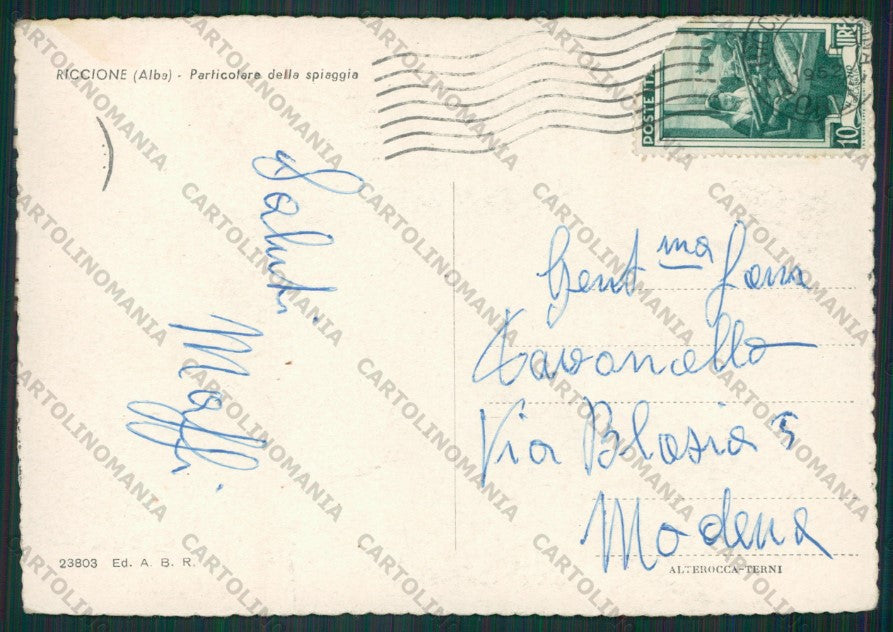 RICCIONE (Alba) - Particolare della spiaggia
POSTE ITA
LIRE
10
1952
Saluti
Maffi
Gent ma
Via Blasia 5
Modena
23803 Ed. A. B. R.
ALTEROCCA-TERNI
CARTOLINOMANIA